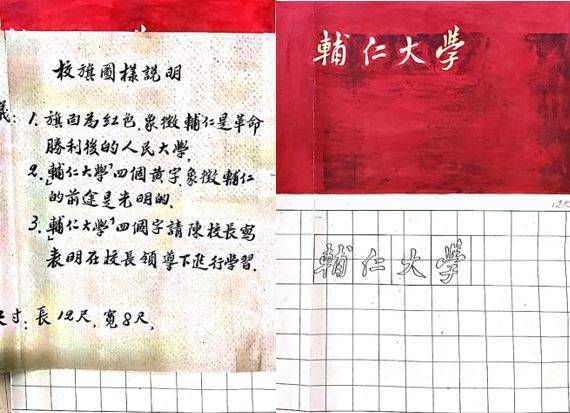 校旗圖樣說明
義:1.旗面為紅色,象徵輔仁是革命
勝利後的人民大學,
2.「輔仁大學」四個黃字,象徵輔仁
的前途是光明的,
3.「輔仁大學」四個字請陳校長寫
表明在校長領導下進行學習.
尺寸:長12尺,寬8尺,
輔仁大學
12尺
輔仁大學